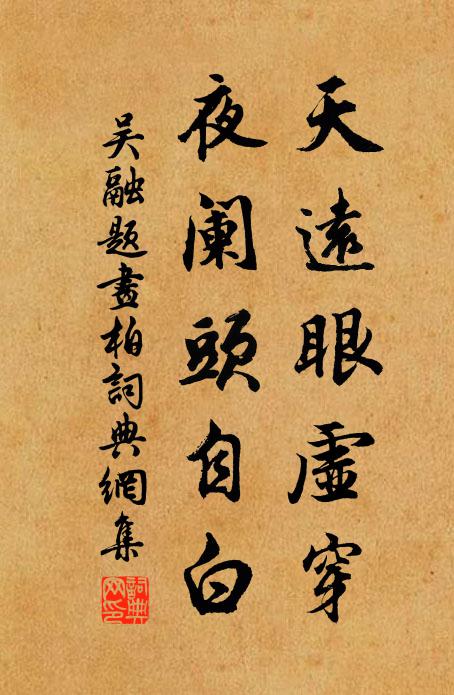 天遠眼虛穿
夜阑頭自白
吴融题畫柏詞典網集
詞典网印